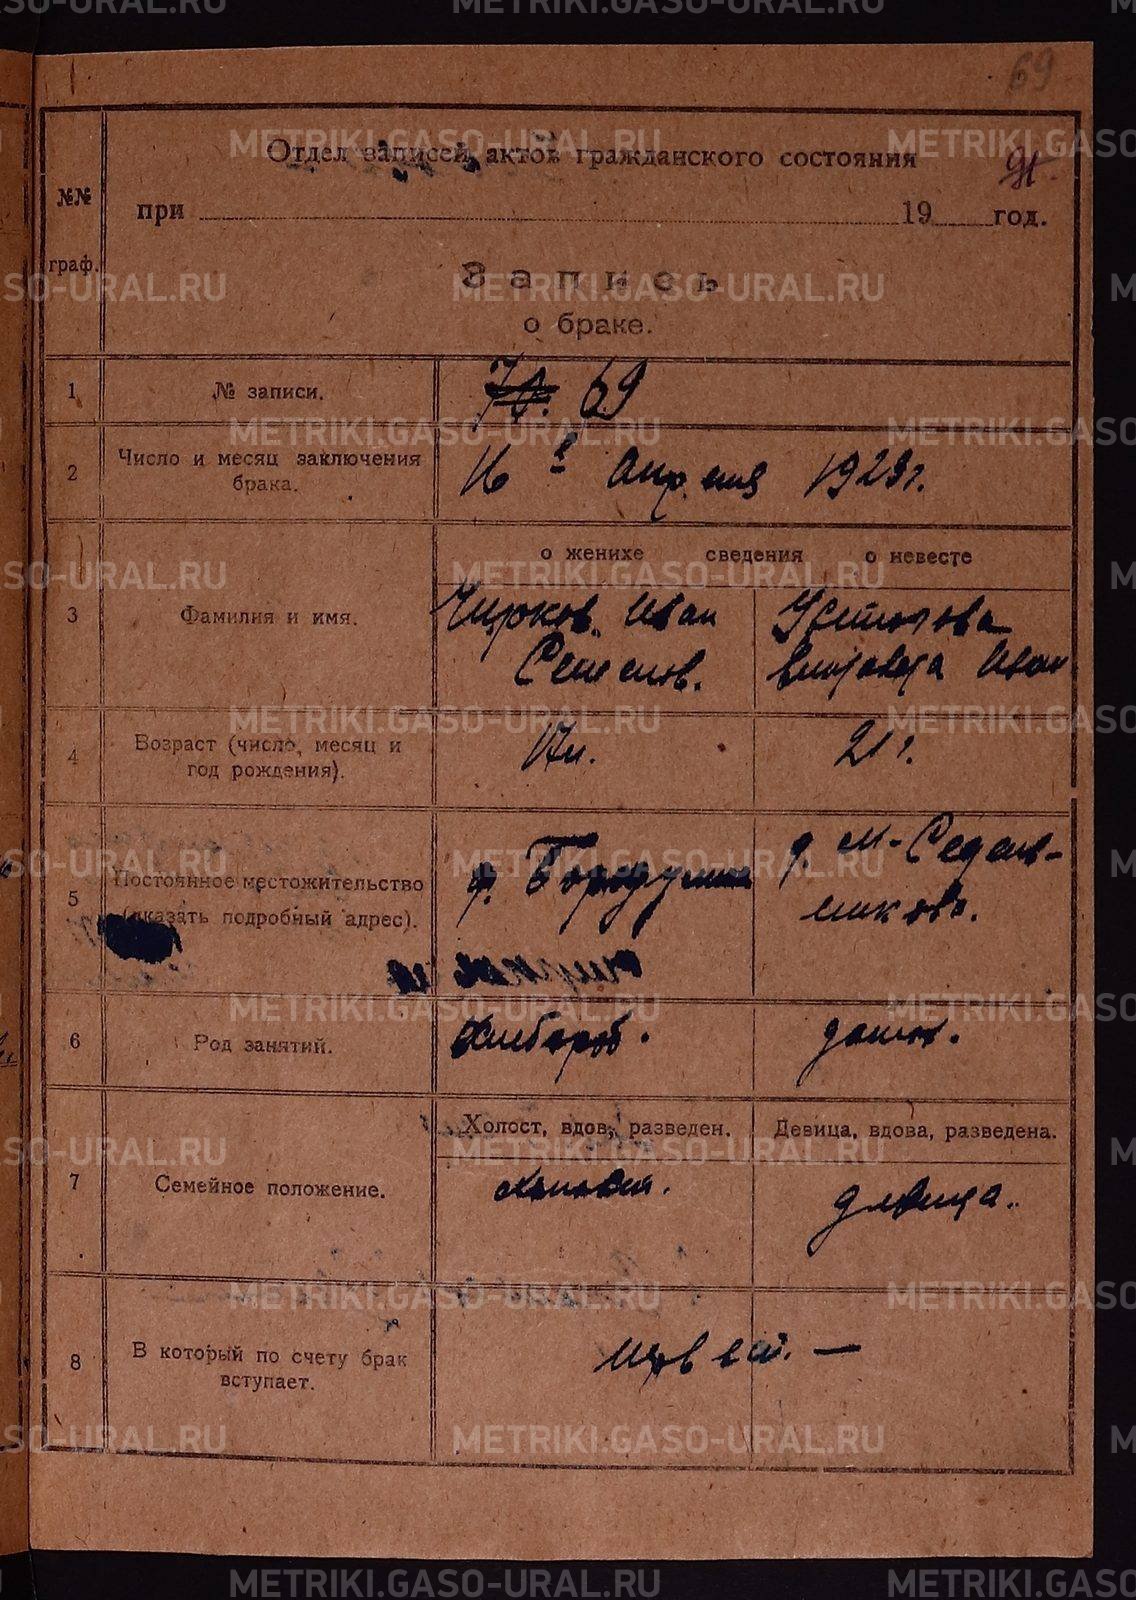 69
Отдел записей актов гражданского состояния
№№ граф.
при 19 год.
Запись
о браке.
1 № записи. 70. 69
2 Число и месяц заключения брака. 16 е Апреля 1929 г.
о женихе сведения о невесте
3 Фамилия и имя.
Чирков Иван
Семенов.
Устюгова
Иван
4 Возраст (число, месяц и год рождения). 17 л. 21 г.
5 Постоянное местожительство (указать подробный адрес).
д. Бородулина
д. М-Седель-
никова.
6 Род занятий. Хлебороб. домох.
Холост, вдов, разведен. Девица, вдова, разведена.
7 Семейное положение. девица.
8 В который по счету брак вступает. первый. —
METRIKI.GASO-URAL.RU